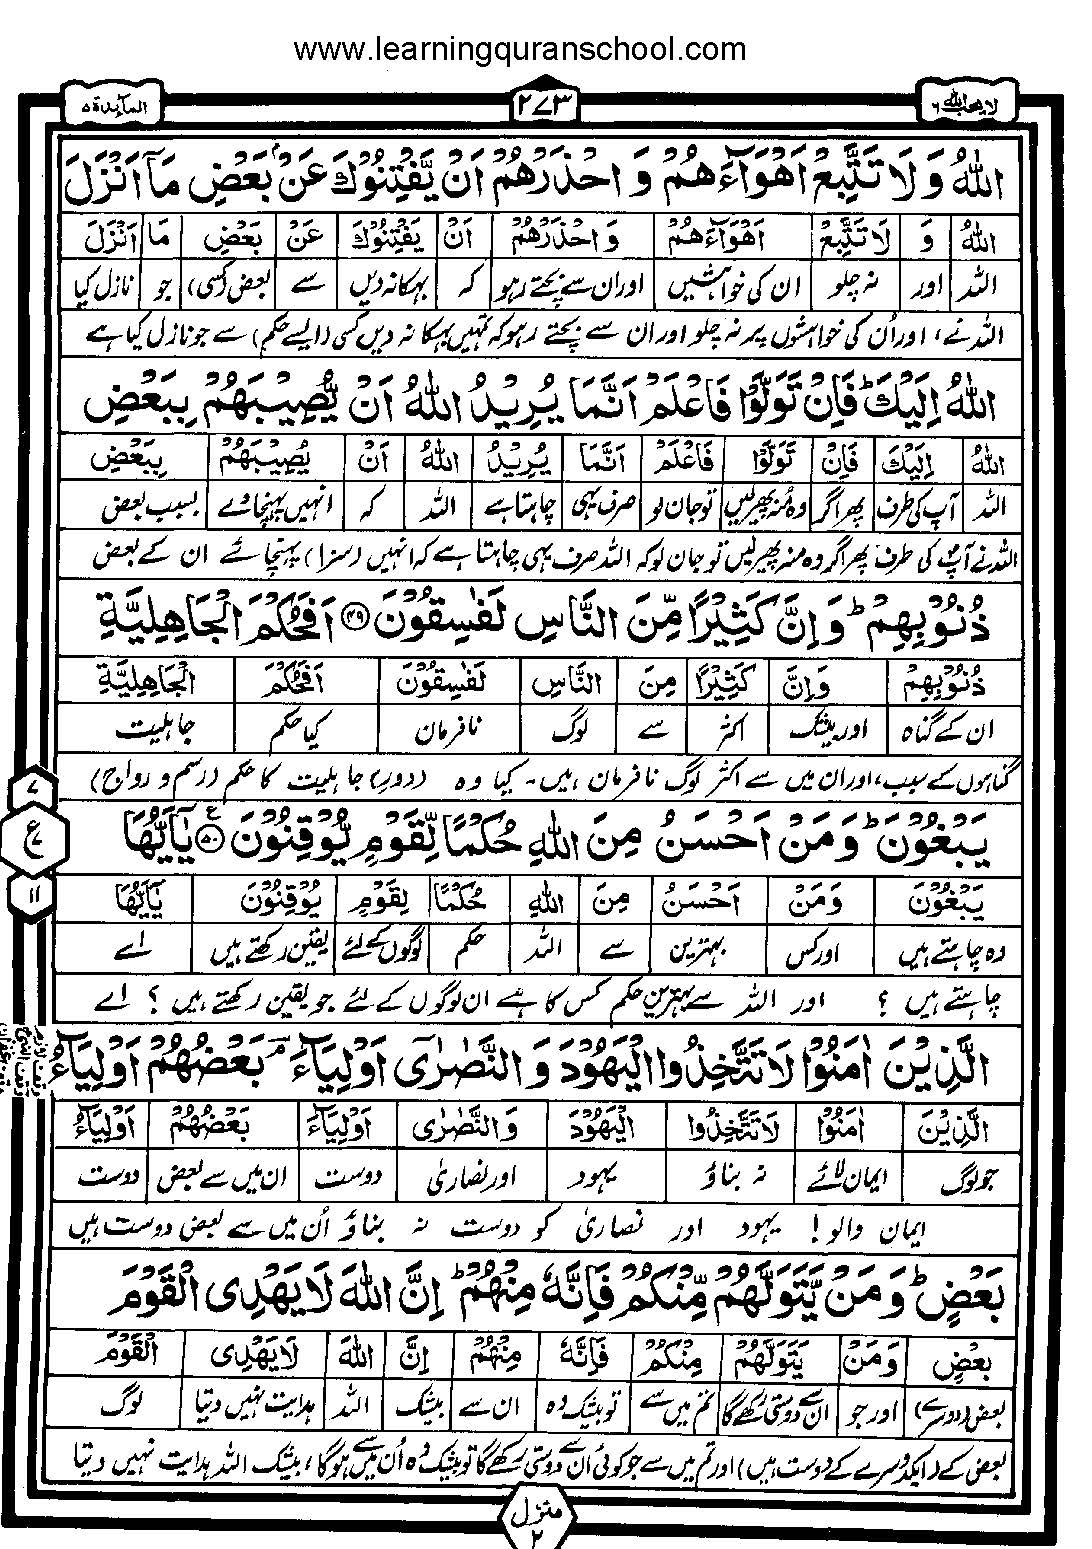 www.learningquranschool.com
لا یحب اللہ ٦
٢٧٣
المآئدة ٥
اللّٰهُ وَلَا تَتَّبِعْ اَهْوَآءَهُمْ وَ احْذَرْهُمْ اَنْ يَّفْتِنُوْكَ عَنْۢ بَعْضِ مَاۤ اَنْزَلَ
اللّٰهُ وَ لَا تَتَّبِعْ اَهْوَآءَهُمْ وَاحْذَرْهُمْ اَنْ يَفْتِنُوْكَ عَنْ بَعْضِ مَا اَنْزَلَ
اللہ اور نہ چلو ان کی خواہشیں اور ان سے بچتے رہو کہ بہکا نہ دیں سے بعض (کسی) جو نازل کیا
اللہ نے، اور اُن کی خواہشوں پر نہ چلو اور ان سے بچتے رہو کہ تمہیں بہکا نہ دیں کسی (ایسے حکم) سے جو نازل کیا ہے
اللّٰهُ اِلَيْكَ ؕ فَاِنْ تَوَلَّوْا فَاعْلَمْ اَنَّمَا يُرِيْدُ اللّٰهُ اَنْ يُّصِيْبَهُمْ بِبَعْضِ
اللّٰهُ اِلَيْكَ فَاِنْ تَوَلَّوْا فَاعْلَمْ اَنَّمَا يُرِيْدُ اللّٰهُ اَنْ يُصِيْبَهُمْ بِبَعْضِ
اللہ آپ کی طرف پھر اگر وہ منہ پھیر لیں تو جان لو صرف یہی چاہتا ہے اللہ کہ انہیں پہنچا دے بسبب بعض
اللہ نے آپؐ کی طرف پھر اگر وہ منہ پھیر لیں تو جان لو کہ اللہ صرف یہی چاہتا ہے کہ انہیں (سزا) پہنچائے ان کے بعض
ذُنُوْبِهِمْ ؕ وَاِنَّ كَثِيْرًا مِّنَ النَّاسِ لَفٰسِقُوْنَ ﴿٤٩﴾ اَفَحُكْمَ الْجَاهِلِيَّةِ
ذُنُوْبِهِمْ وَاِنَّ كَثِيْرًا مِنَ النَّاسِ لَفٰسِقُوْنَ اَفَحُكْمَ الْجَاهِلِيَّةِ
ان کے گناہ اور بیشک اکثر سے لوگ نافرمان کیا حکم جاہلیت
گناہوں کے سبب، اور ان میں سے اکثر لوگ نافرمان ہیں۔ کیا وہ (دور) جاہلیت کا حکم (رسم و رواج)
يَبْغُوْنَ ؕ وَمَنْ اَحْسَنُ مِنَ اللّٰهِ حُكْمًا لِّقَوْمٍ يُّوْقِنُوْنَ ﴿٥٠﴾ يٰۤاَيُّهَا
٧
ع
١١
يَبْغُوْنَ وَمَنْ اَحْسَنُ مِنَ اللّٰهِ حُكْمًا لِقَوْمٍ يُوْقِنُوْنَ يٰۤاَيُّهَا
وہ چاہتے ہیں اور کس بہترین سے اللہ حکم لوگوں کے لئے یقین رکھتے ہیں اے
چاہتے ہیں ؟ اور اللہ سے بہترین حکم کس کا ہے ان لوگوں کے لئے جو یقین رکھتے ہیں ؟ اے
الَّذِيْنَ اٰمَنُوْا لَا تَتَّخِذُوا الْيَهُوْدَ وَ النَّصٰرٰۤى اَوْلِيَآءَ ؔۘ بَعْضُهُمْ اَوْلِيَآءُ
الَّذِيْنَ اٰمَنُوْا لَا تَتَّخِذُوا الْيَهُوْدَ وَالنَّصٰرٰى اَوْلِيَآءَ بَعْضُهُمْ اَوْلِيَآءُ
جو لوگ ایمان لائے نہ بناؤ یہود اور نصاریٰ دوست ان میں سے بعض دوست
ایمان والو! یہود اور نصاریٰ کو دوست نہ بناؤ اُن میں سے بعض دوست ہیں
بَعْضٍ ؕ وَ مَنْ يَّتَوَلَّهُمْ مِّنْكُمْ فَاِنَّهٗ مِنْهُمْ ؕ اِنَّ اللّٰهَ لَا يَهْدِى الْقَوْمَ
بَعْضٍ وَمَنْ يَتَوَلَّهُمْ مِنْكُمْ فَاِنَّهٗ مِنْهُمْ اِنَّ اللّٰهَ لَا يَهْدِى الْقَوْمَ
بعض (دوسرے) اور جو ان سے دوستی رکھے گا تم میں سے تو بیشک وہ ان سے بیشک اللہ ہدایت نہیں دیتا لوگ
بعض کے (ایکدوسرے کے دوست ہیں) اور تم میں سے جو کوئی ان سے دوستی رکھے گا تو بیشک وہ اُن میں سے ہوگا، بیشک اللہ ہدایت نہیں دیتا
منزل ٢